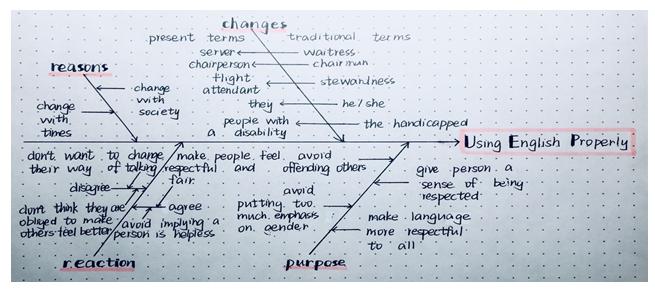 changes
present terms traditional terms
server waitress
chairperson chairman
flight
attendant
stewardness
they he/she
people with
a disability
the handicapped
reasons
change
with
society
change
with
times
Using English Properly
don't want to change
their way of talking
disagree
don't think they are
obliged to make
others feel better
make people feel
respectful and
fair
agree
avoid implying a
person is helpless
reaction
avoid
offending others
avoid
putting two
much emphasis
on gender
give person a
sense of being
respected
make language
more respectful
to all
purpose